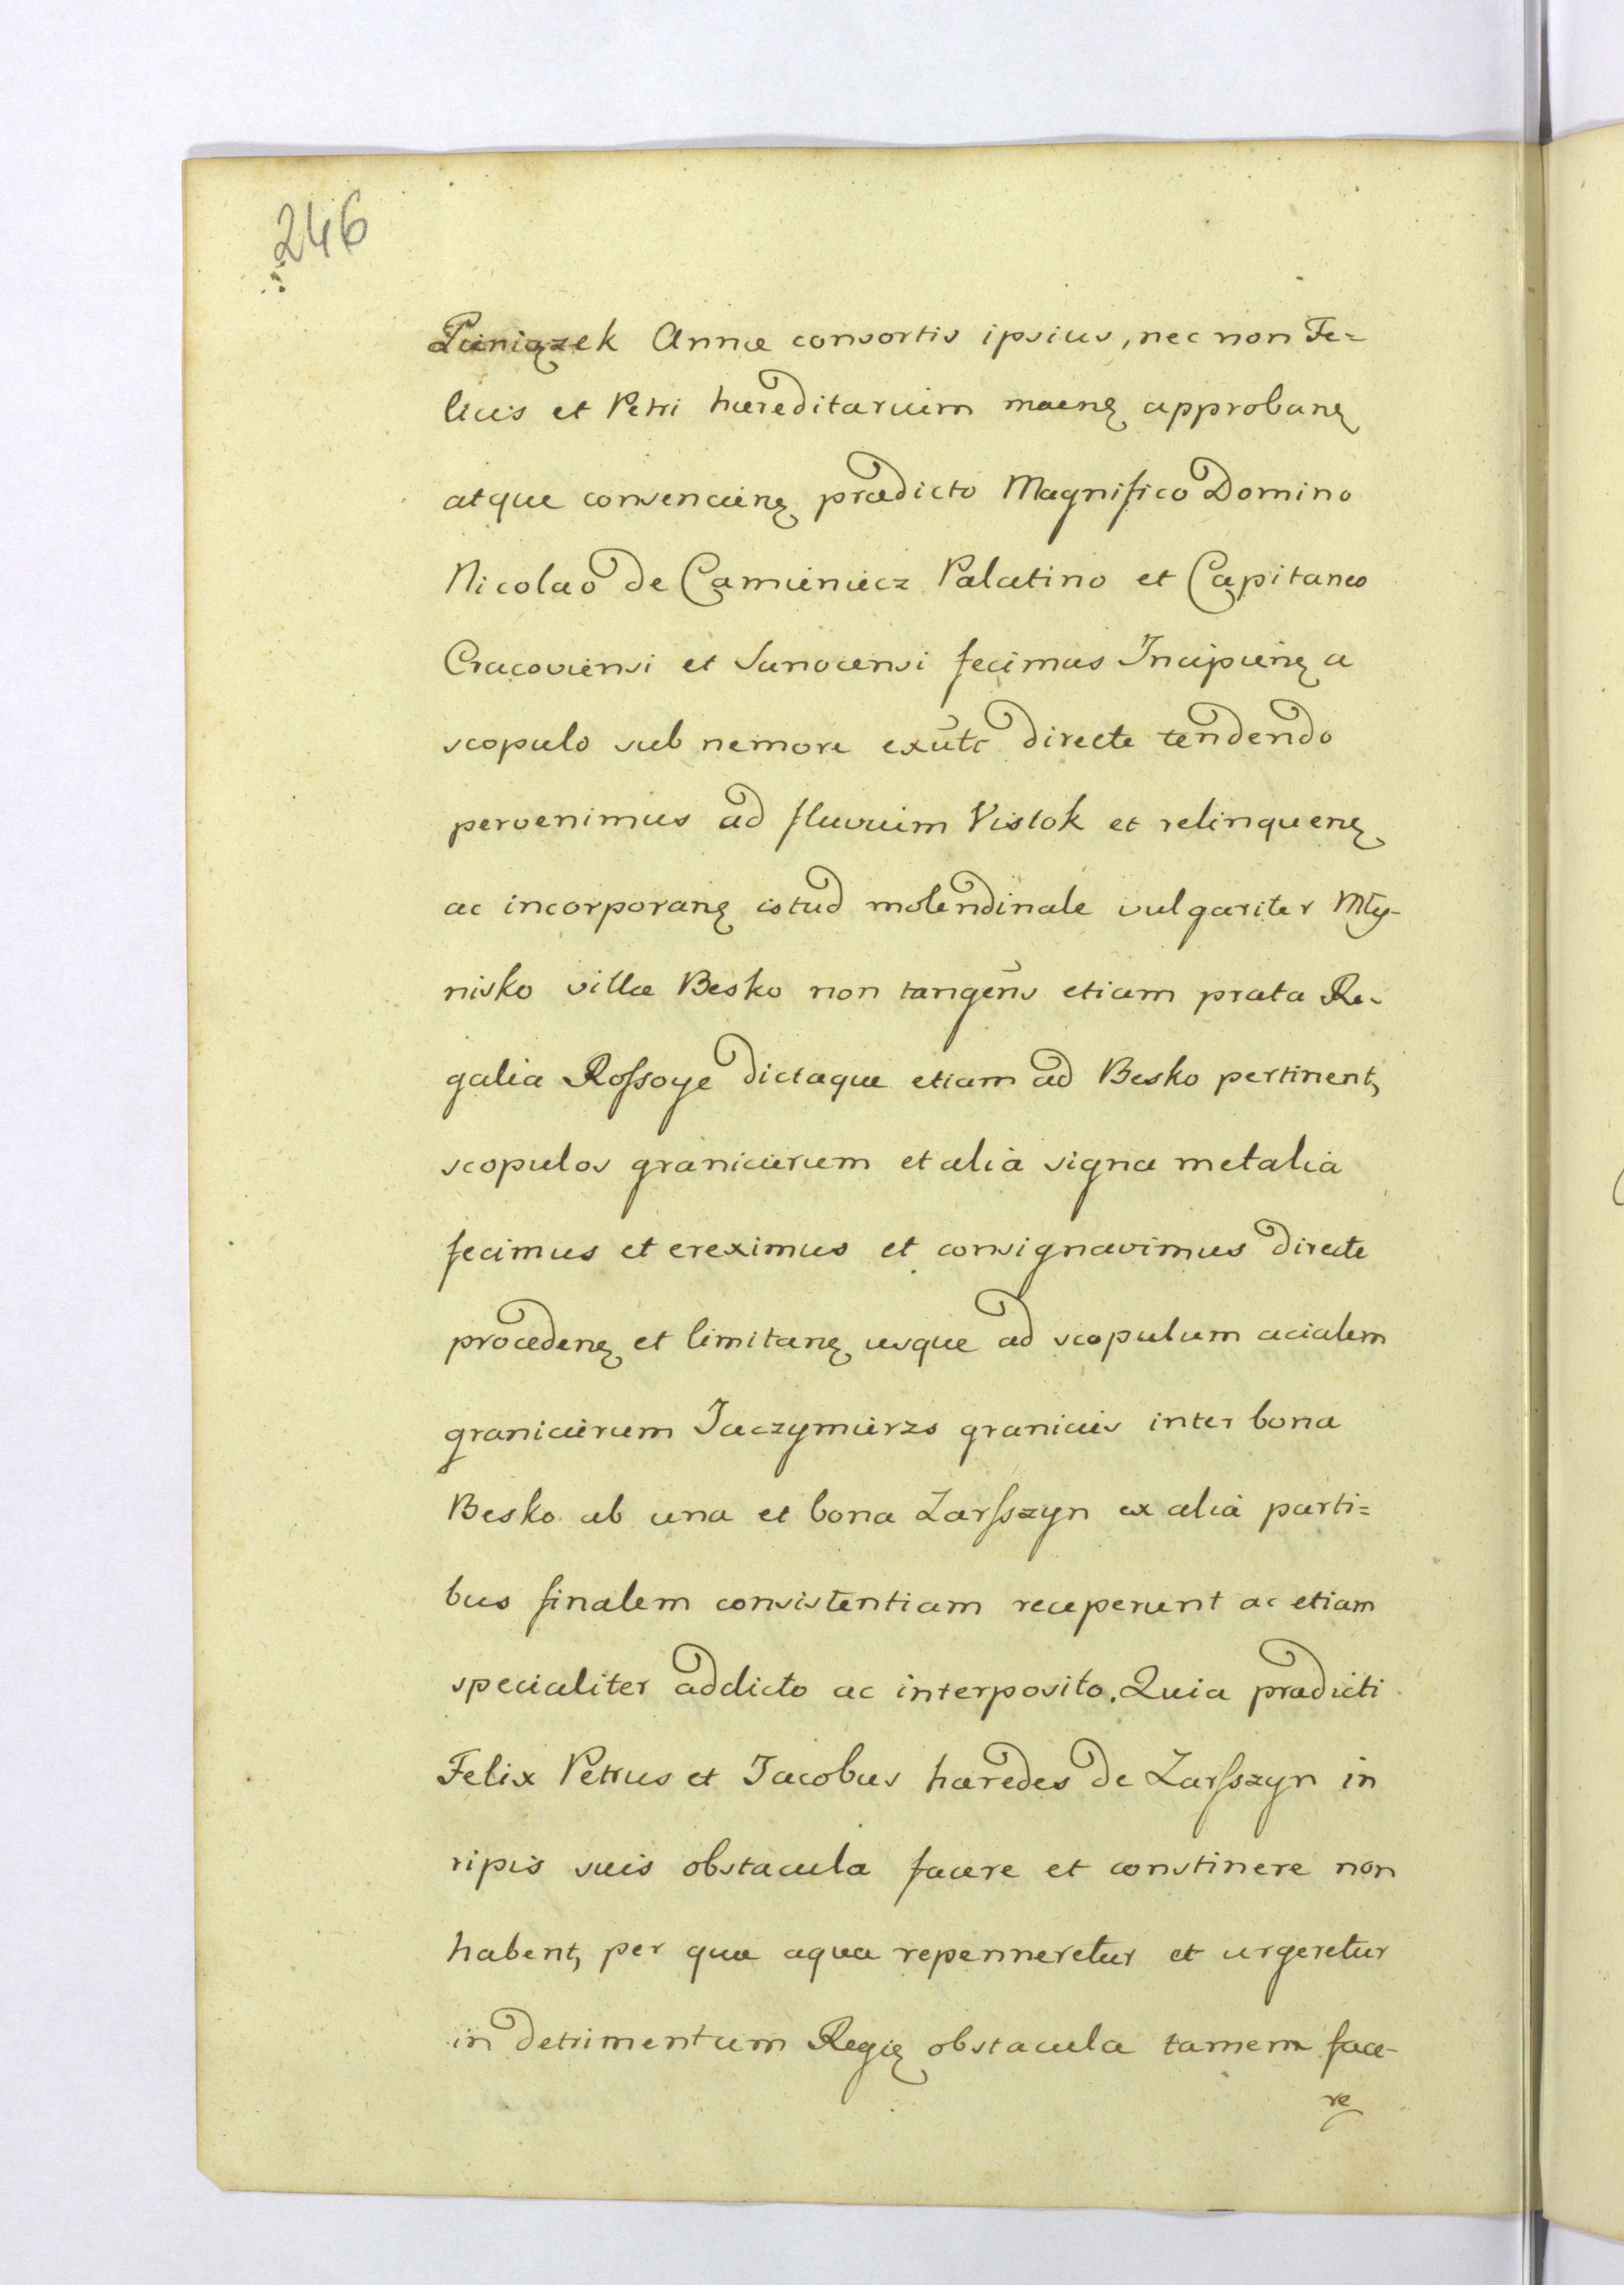 246
Pieniązek Annæ consortis ipsius, nec non Fe=
licis et Petri hæreditarium maenȩ approbanȩ
atque convencienȩ prædicto Magnifico Domino
Nicolao de Camieniecz Palatino et Capitaneo
Cracoviensi et Sanocensi fecimus Incipienȩ a
scopulo sub nemore exūtc directe tendendo
pervenimus ad fluvium Vislok et relinquenȩ
ac incorporanȩ istud molendinale vulgariter Mły-
nisko villæ Besko non tangēns etiam prata Re-
galia Rossoye dictaquæ etiam ad Besko pertinent,
scopulos granicierum et alia signa metalia
fecimus et ereximus et consignavimus directe
procedenȩ et limitanȩ usque ad scopulum acialem
granicierum Jaczymierzs graniciis inter bona
Besko ab una et bona Zarsszyn ex alia parti=
bus finalem consistentiam receperunt ac etiam
specialiter addicto ac interposito. Quia prædicti
Felix Petrus et Jacobus hæredes de Zarsszyn in
ripis suis obstacula facere et constinere non
habent, per quæ aqua repenneretur et urgeretur
in detrimentum Regiȩ obstacula tamem face-
re